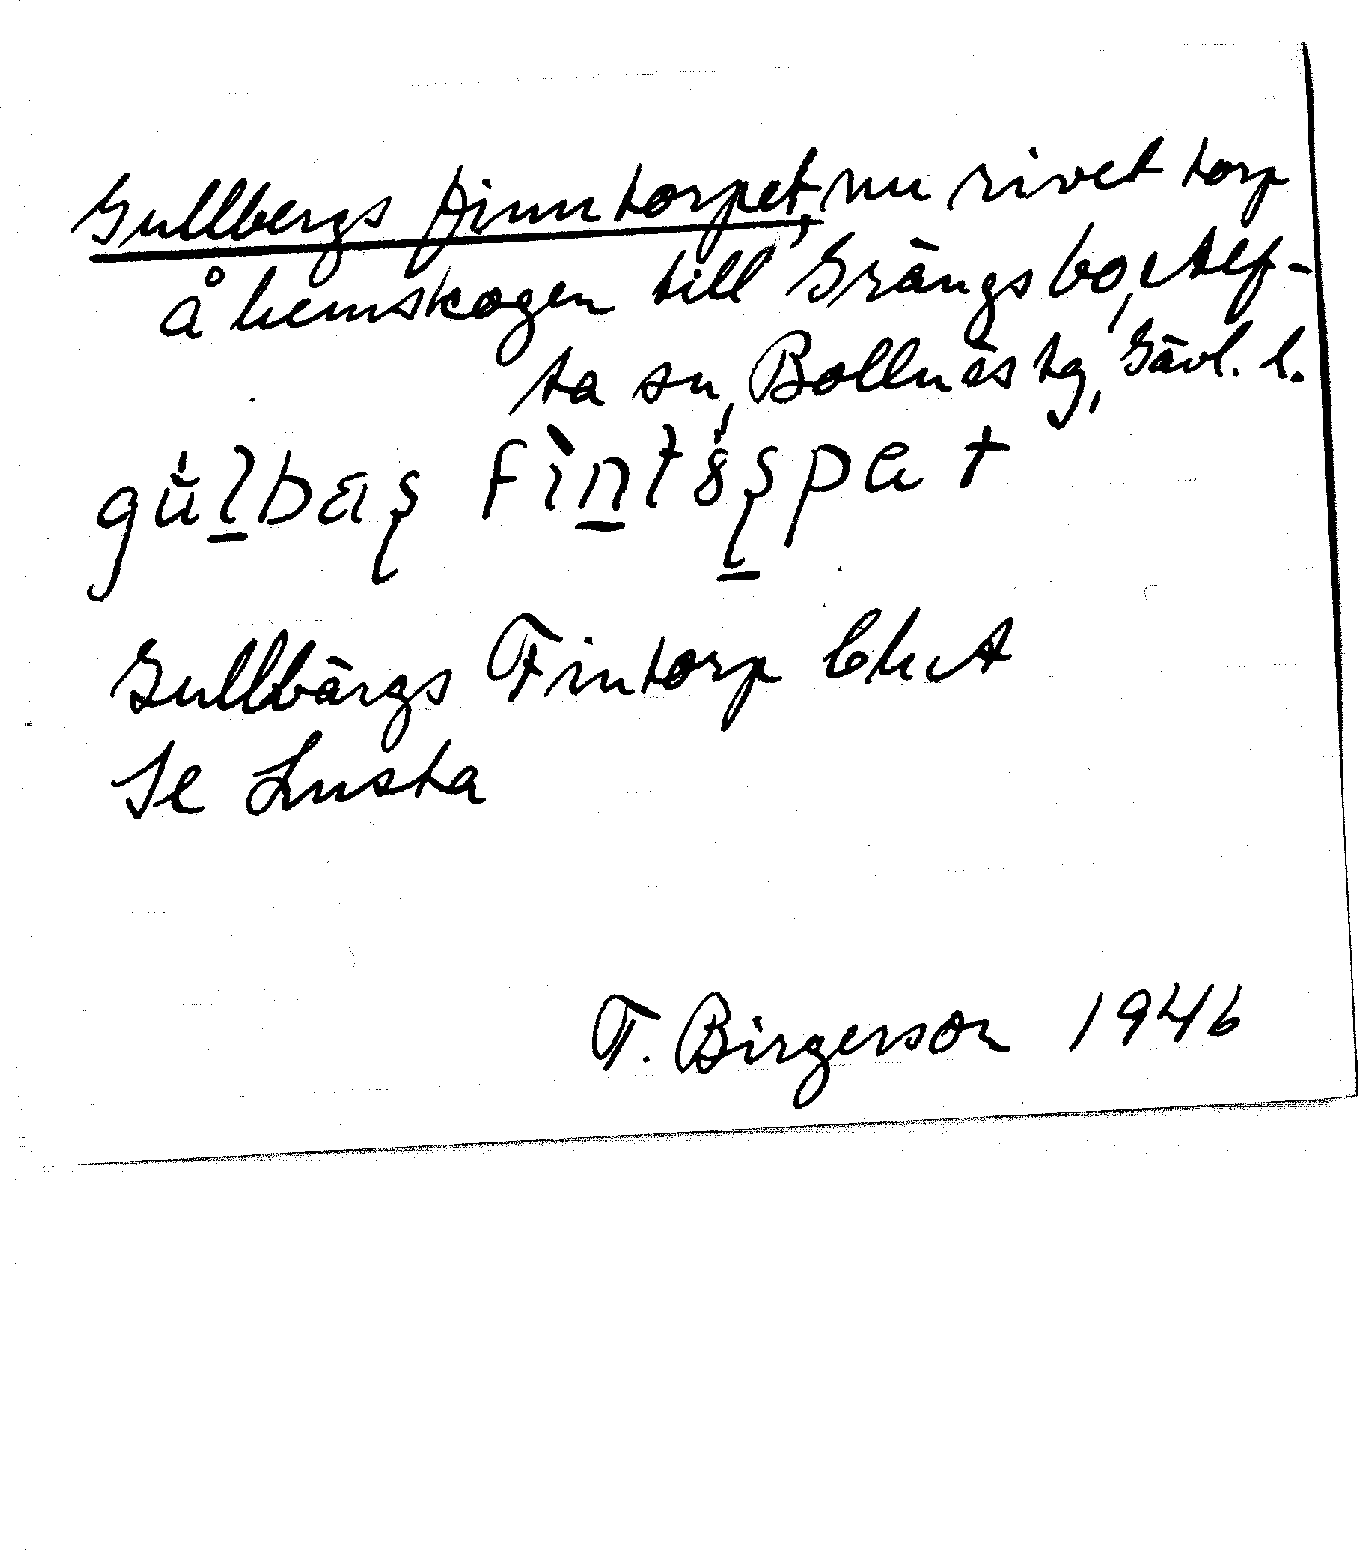 Gullbergs finntorpet, nu rivet torp
å hemskogen till Grängsbo, Alf-
ta sn, Bollnäs tg, Gävl. l.
Gullbärgs Fintorp
Se Lusta
T. Birgerson 1946